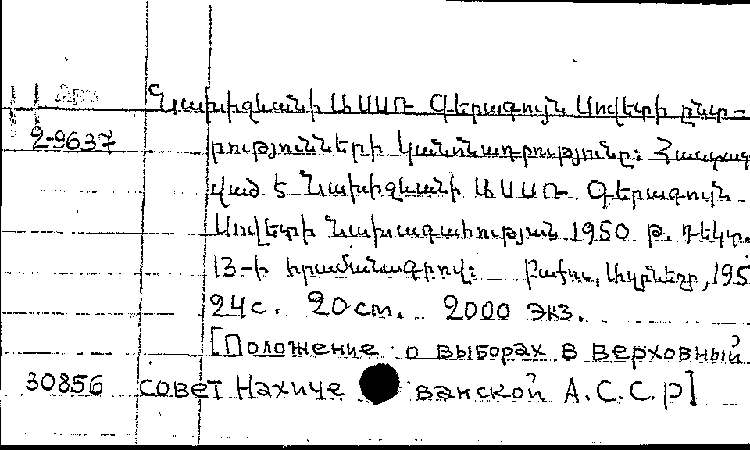 Арм
Նախիջևանի ԱՍՍՌ Գերագույն Սովետի ընտ-
2-9637 րությունների կանոնադրությունը: Հաստատ
ված է Նախիջևանի ԱՍՍՌ Գերագույն
Սովետի Նախագահության 1950 թ. դեկտ.
13-ի հրամանագրով: Բաքու, 195
24с. 20cm. 2000 экз.
[Положение о выборах в верховный
30856 совет Нахиче ванской А.С.С.Р]